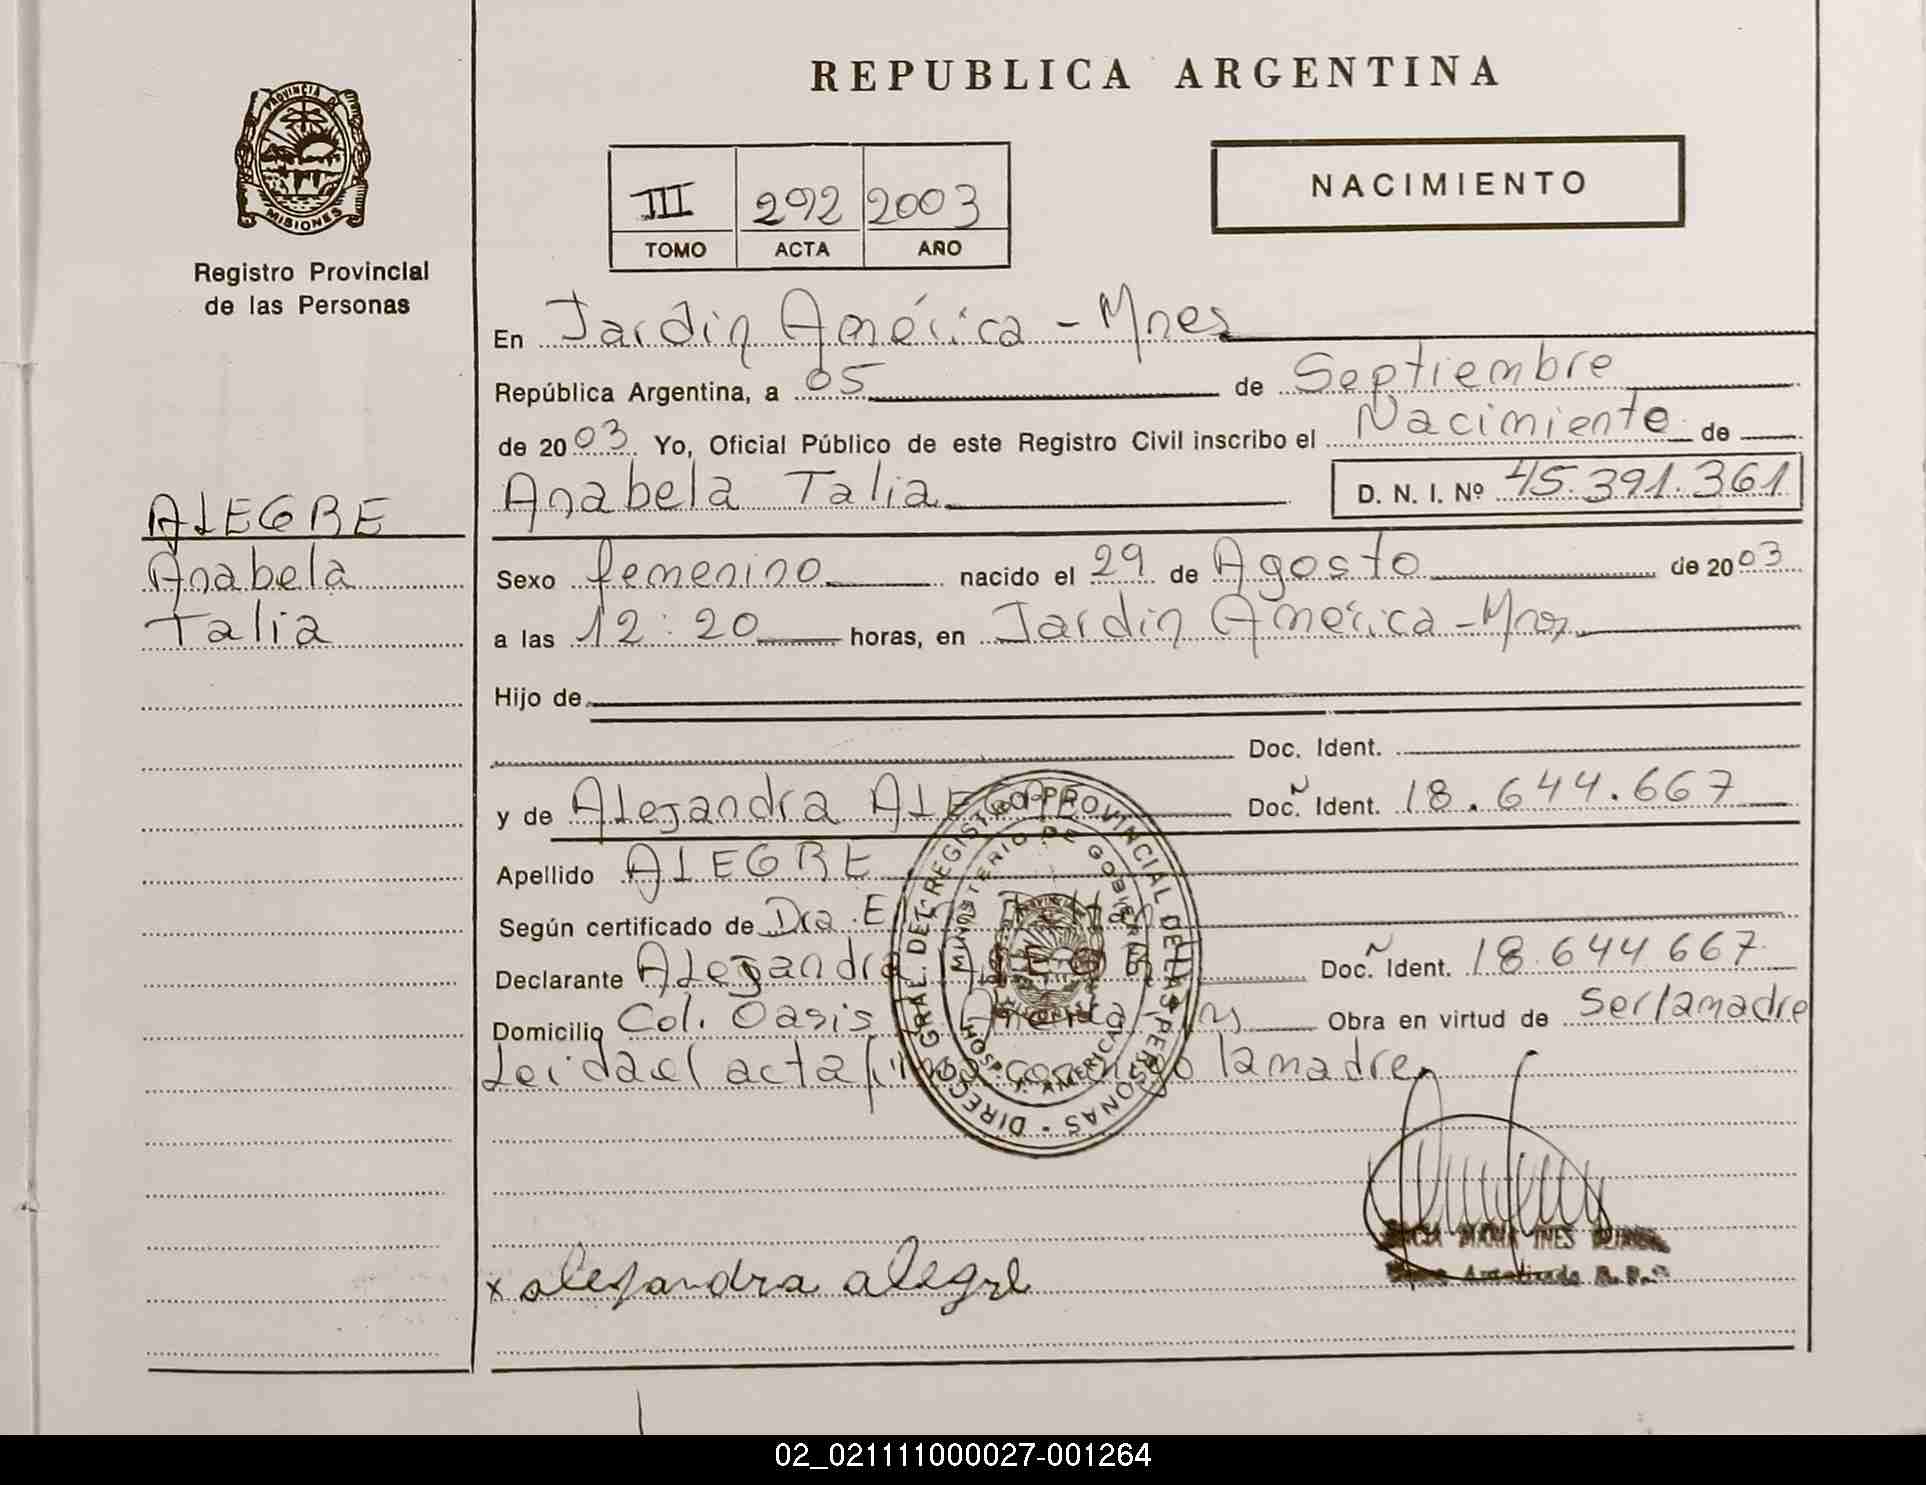 REPUBLICA ARGENTINA
PROVINCIA DE
MISIONES
Registro Provincial
de las Personas
III 292 2003
TOMO ACTA AÑO
NACIMIENTO
En Jardin América - Mnes
República Argentina, a 05 de Septiembre
de 2003 Yo, Oficial Público de este Registro Civil inscribo el Nacimiento de
Anabela Talia D. N. I. Nº 45.391.361
ALEGRE
Anabela
Talia
Sexo femenino nacido el 29 de Agosto de 2003
a las 12:20 horas, en Jardin América - Mnes
Hijo de
Doc. Ident.
y de Alejandra ALEGRE Doc. Ident. 18.644.667
Apellido ALEGRE
Según certificado de Dra.
Declarante Alejandra ALEGRE Doc. Ident. 18.644.667
Domicilio Col. Oasis América Obra en virtud de ser la madre
Leida el acta firma conmigo la madre
DIRECC. GRAL. DEL REGISTRO PROVINCIAL DE LAS PERSONAS
MINISTERIO DE GOBIERNO
HOSP. J. AMERICA
MARIA INES
x alejandra alegre
02_021111000027-001264